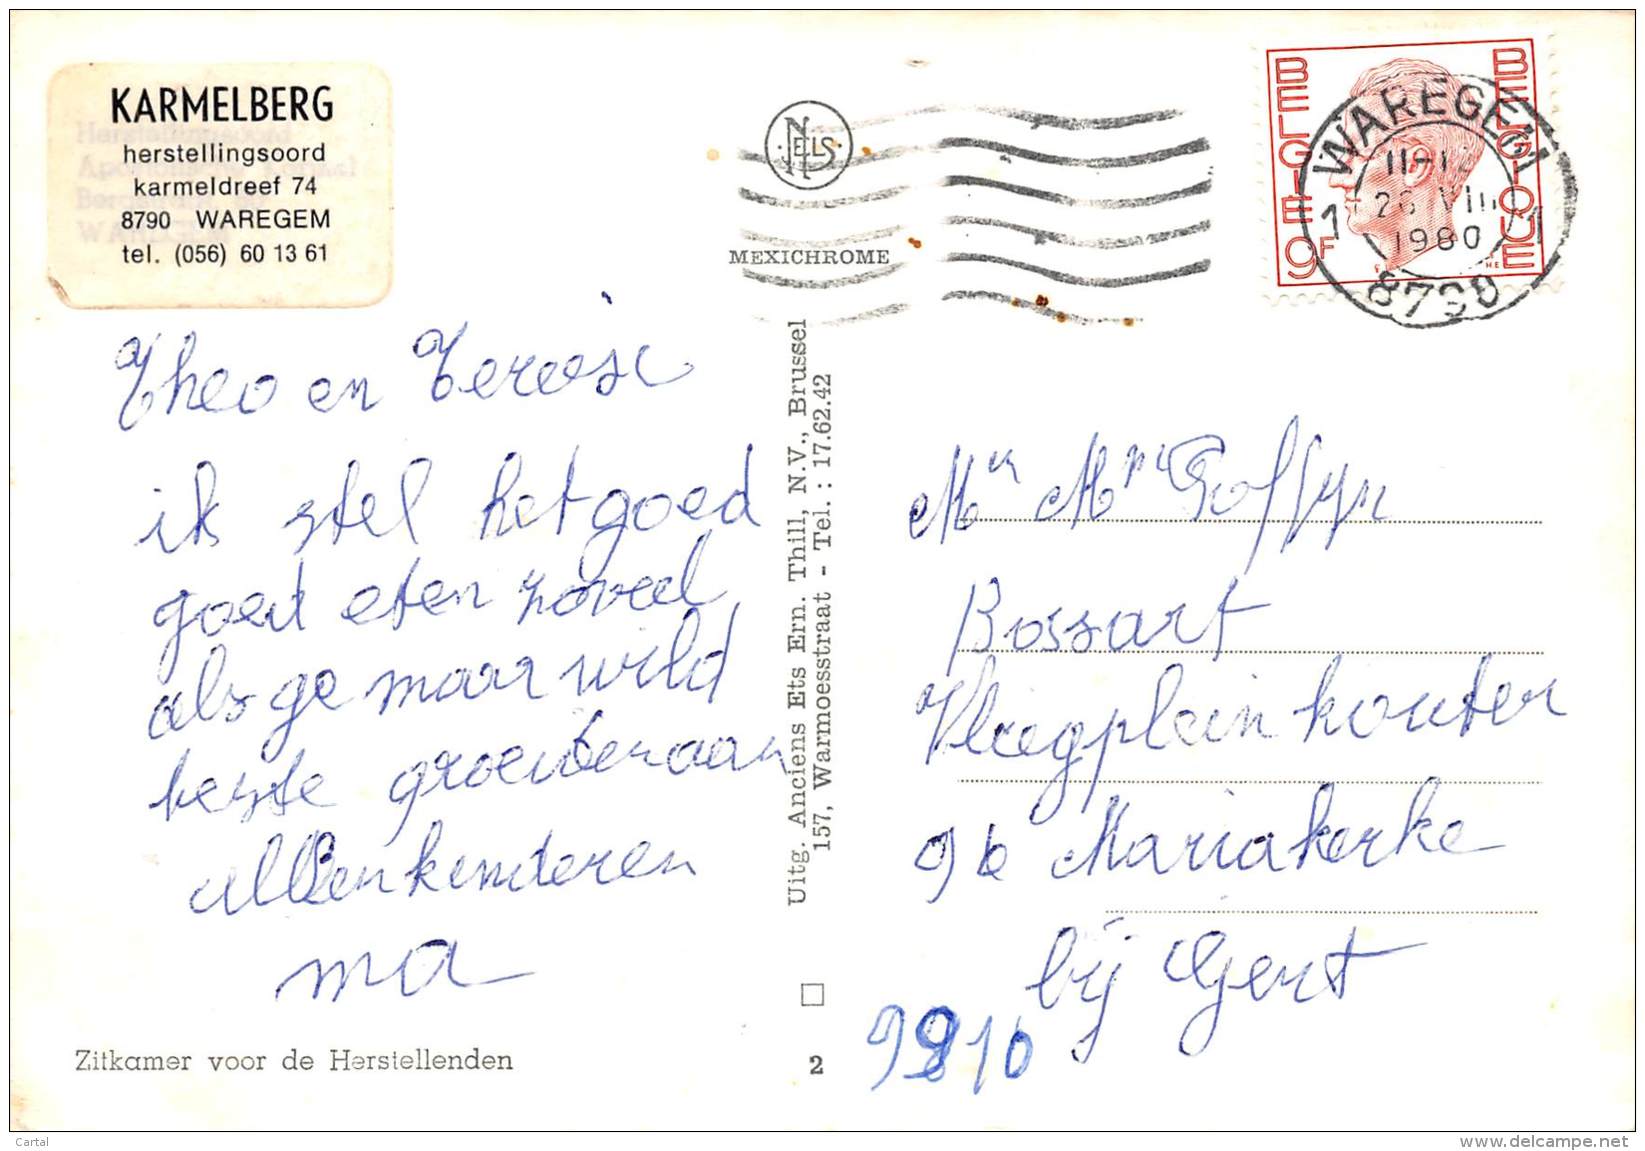 KARMELBERG
herstellingsoord
karmeldreef 74
8790 WAREGEM
tel. (056) 60 13 61
Herstellingsoord
Apostolische Karmel
WAREGEM
NELS
MEXICHROME
BELGIE
BELGIQUE
9F
WAREGEM
26 VIII
1980
1 1
8790
Theo en Terese
ik stel het goed
goed eten zoveel
als ge maar wild
beste groeten aan
allen kinderen
ma
Zitkamer voor de Herstellenden
Uitg. Anciens Ets Ern. Thill, N.V., Brussel
157, Warmoesstraat - Tel. : 17.62.42
2
Mr Mme Goffyn
Bossart
Vliegplein kouter
96 Mariakerke
bij Gent
9810
Cartal
www.delcampe.net